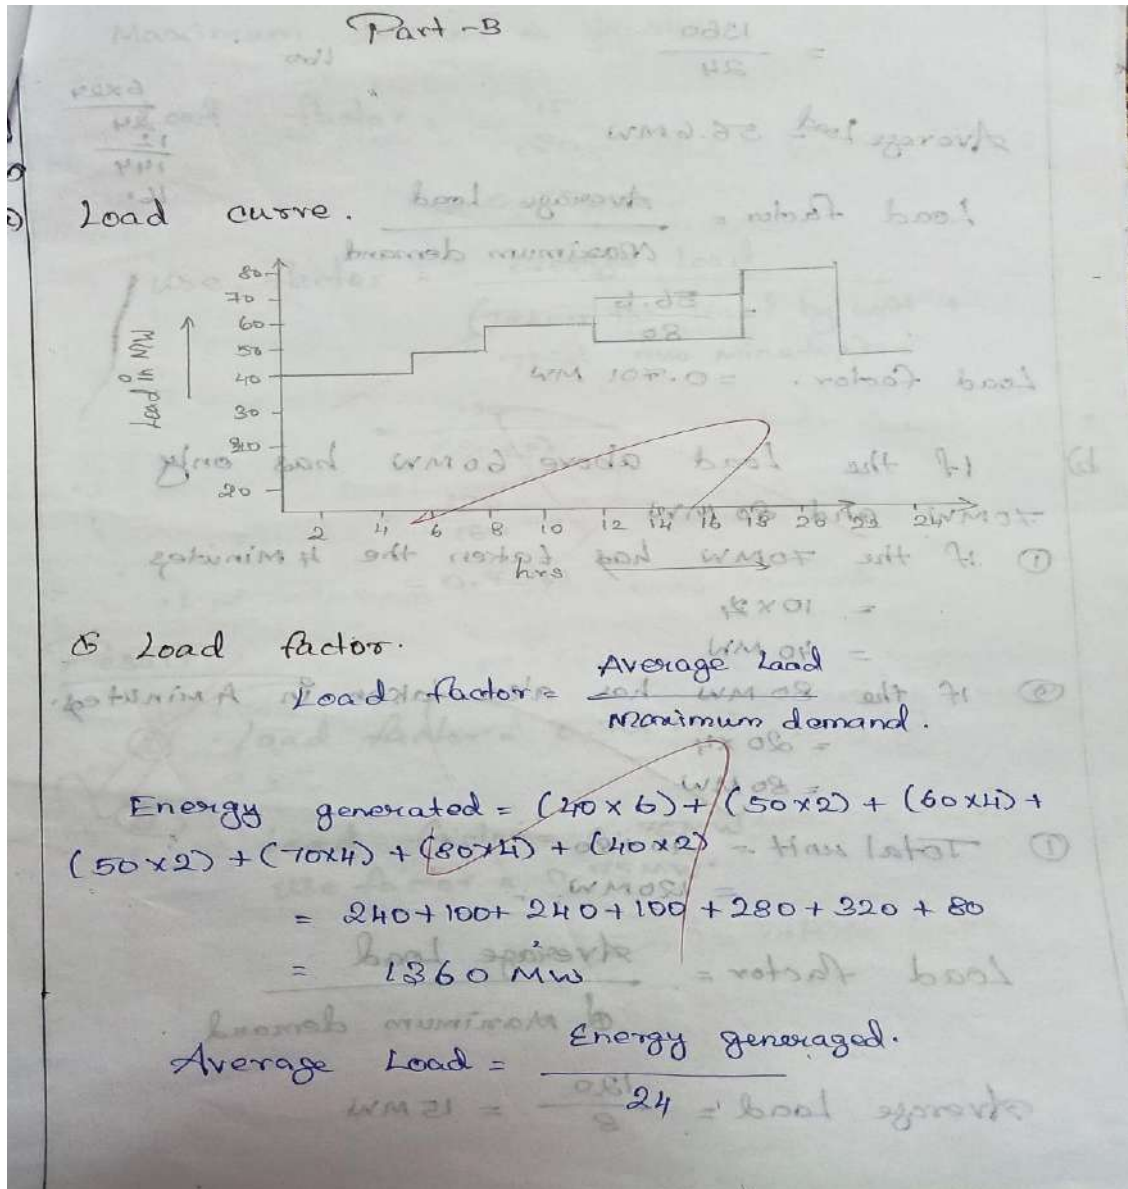 Part-B
Load curve.
80
70
60
50
40
30
20
Load in MW
2 4 6 8 10 12 14 16 18 20 22 24
hrs
Load factor.
Load factor = Average Load
Maximum demand.
Energy generated = (40 x 6) + (50x2) + (60x4) +
(50x2) + (70x4) + (80x4) + (40x2)
= 240+100+ 240+100 +280+320 + 80
= 1360 MW
Average Load = Energy generaged.
24